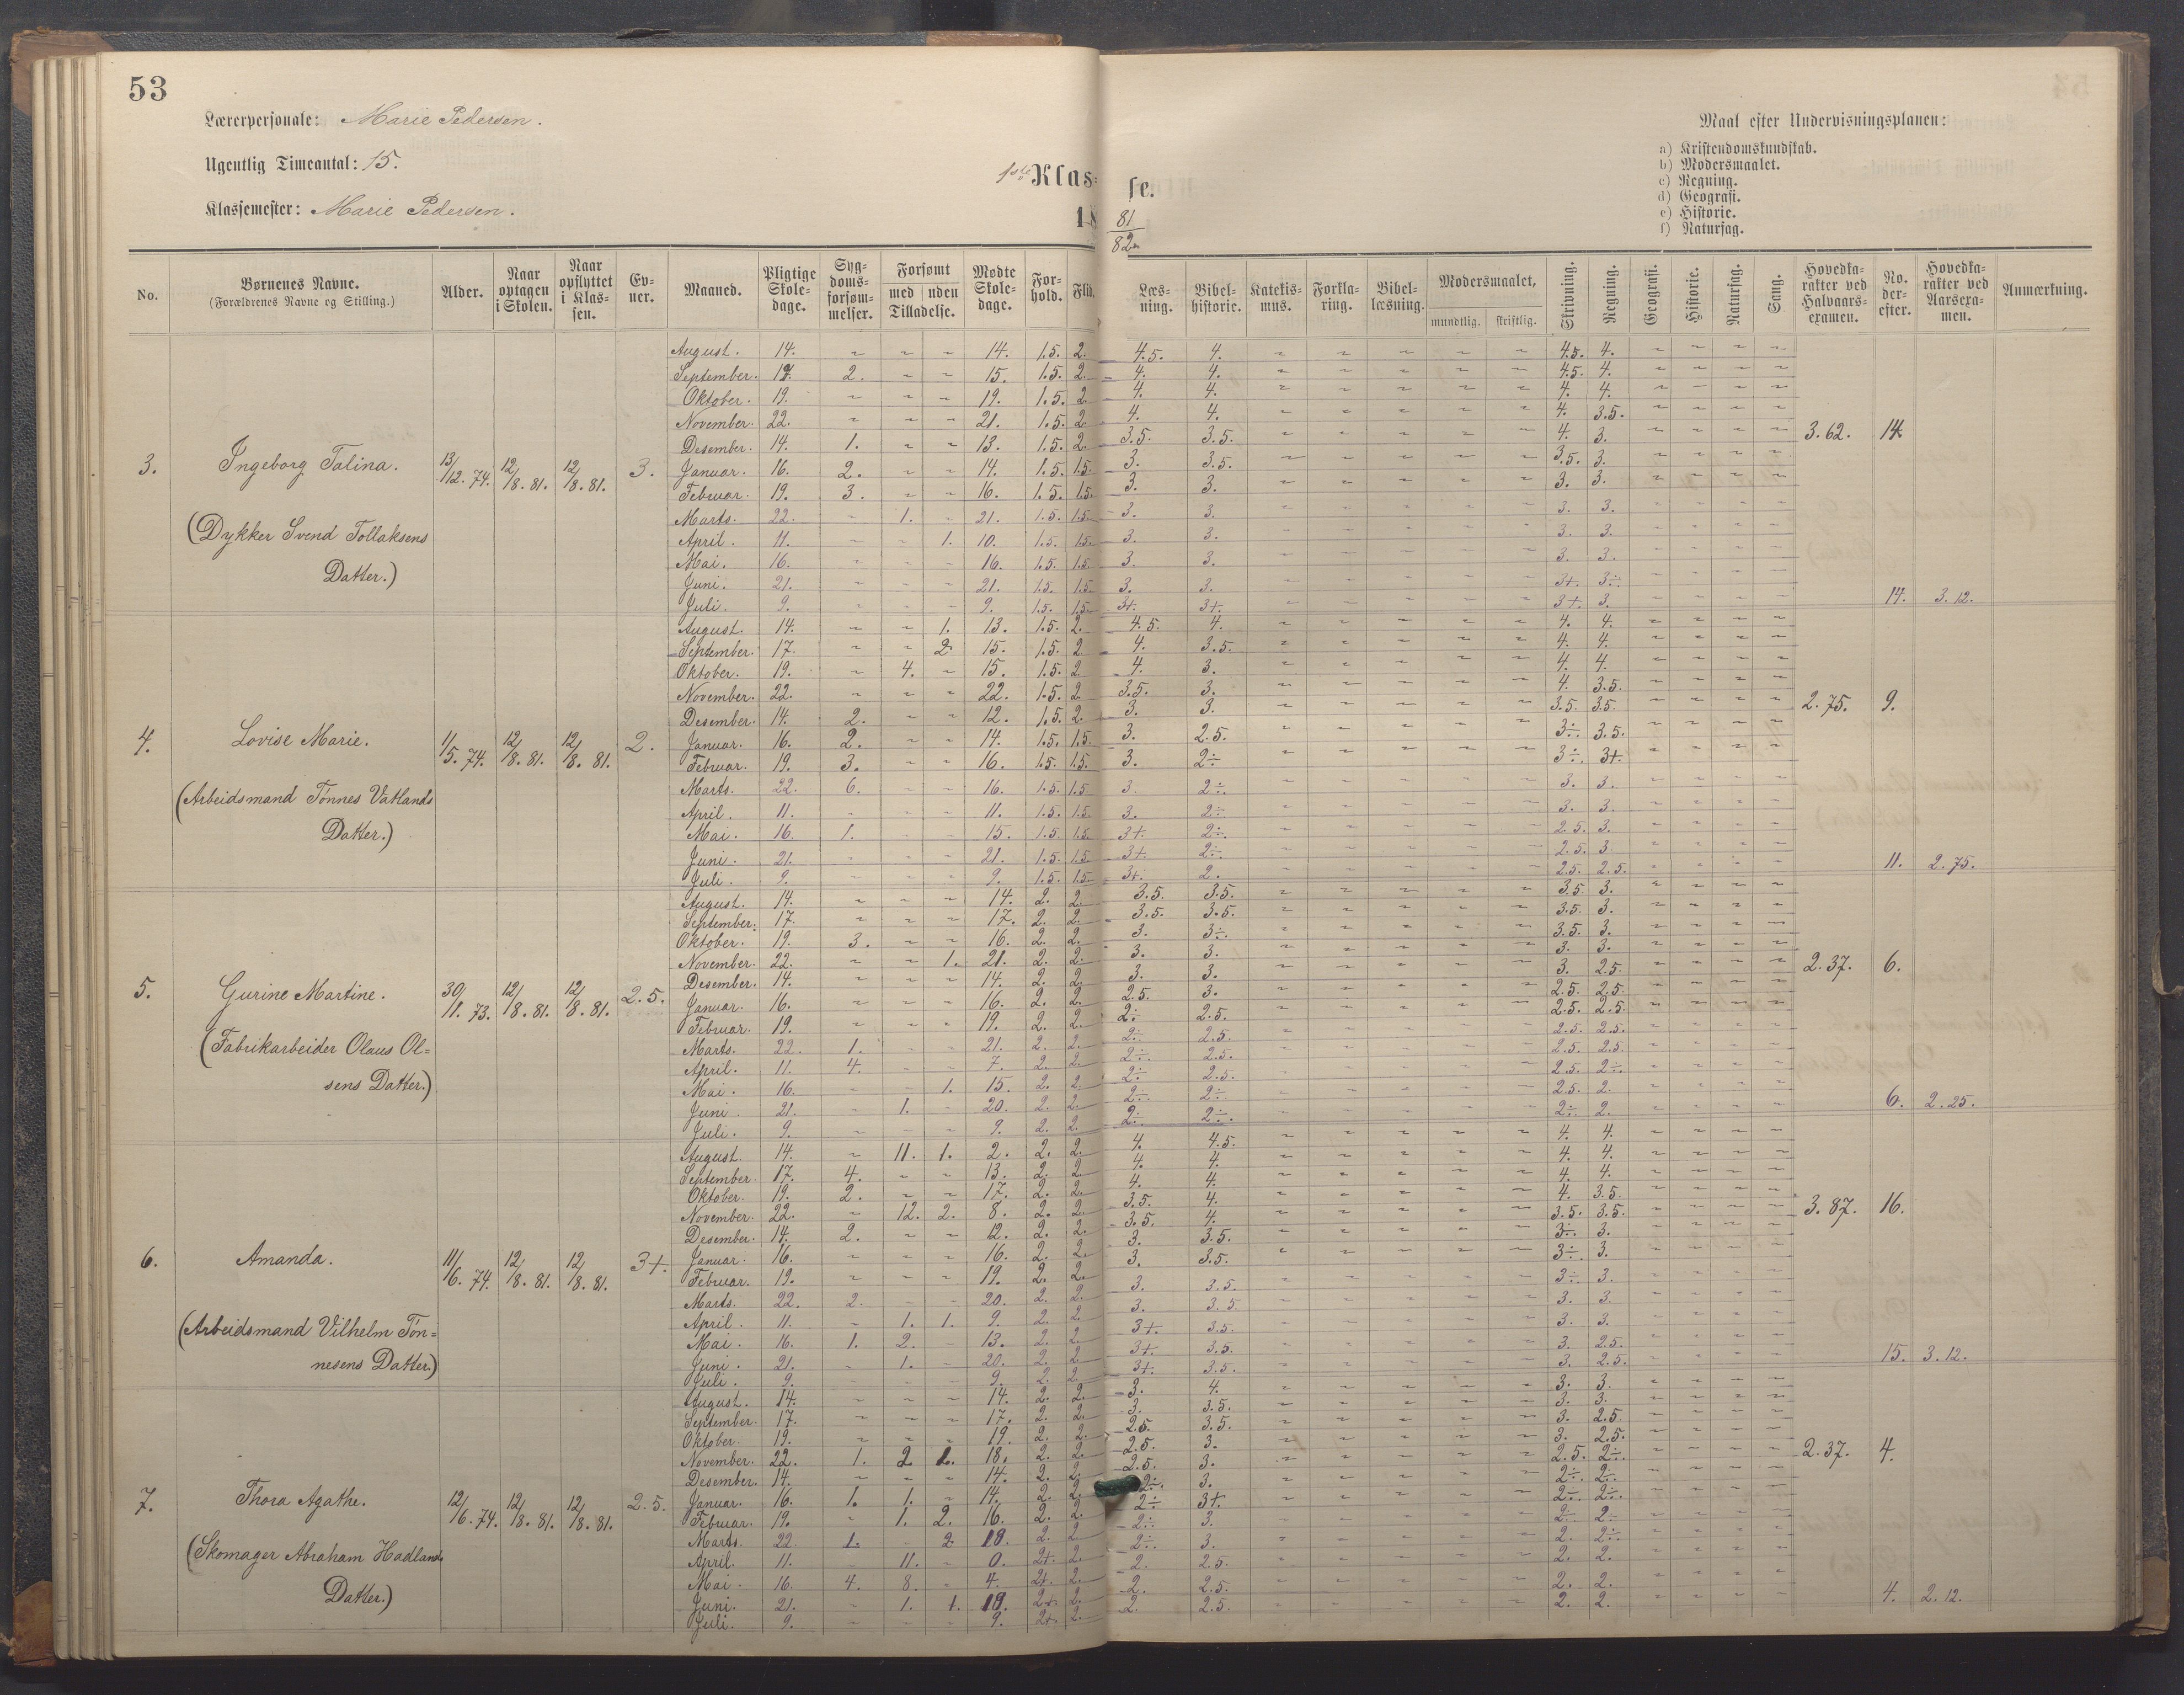 53
Lærerpersonale: Marie Pedersen.
Ugentlig Timeantal: 15.
Klassemester: Marie Pedersen.
1ste Klasse.
18 81/82.
Maal efter Undervisningsplanen:
a) Kristendomskundskab.
b) Modersmaalet.
c) Regning.
d) Geografi.
e) Historie.
f) Naturfag.
No. | Børnenes Navne. (Forældrenes Navne og Stilling.) | Alder. | Naar optagen i Skolen. | Naar opflyttet i Klassen. | Evner. | Maaned. | Pligtige Skoledage. | Sygdomsforsømmelser. | Forsømt med uden Tilladelse. | Mødte Skoledage. | Forhold. | Flid. | Læsning. | Bibelhistorie. | Katekismus. | Forklaring. | Bibellæsning. | Modersmaalet, mundtlig. skriftlig. | Skrivning. | Regning. | Geografi. | Historie. | Naturfag. | Sang. | Hovedkarakter ved Halvaarsexamen. | No. derefter. | Hovedkarakter ved Aarsexamen. | Anmærkning.
3. Ingeborg Talina. 13/12. 74. 12/8. 81. 12/8. 81. 3.
(Dykker Svend Tollaksens
Datter.)
August. 14. 14. 1.5. 2. 4.5. 4. 4.5. 4.
September. 2. 15. 1.5. 2. 4. 4. 4.5. 4.
Oktober. 19. 19. 1.5. 2. 4. 4. 4. 4.
November. 22. 21. 1.5. 2. 4. 4. 4. 3.5.
Desember. 14. 1. 13. 1.5. 2. 3.5. 3.5. 4. 3. 3.62. 14.
Januar. 16. 2. 14. 1.5. 1.5. 3. 3.5. 3.5. 3.
Februar. 19. 3. 16. 1.5. 1.5. 3. 3. 3. 3.
Marts. 22. 1. 21. 1.5. 1.5. 3. 3. 3. 3.
April. 11. 1. 10. 1.5. 1.5. 3. 3. 3. 3.
Mai. 16. 16. 1.5. 1.5. 3. 3. 3. 3.
Juni. 21. 21. 1.5. 1.5. 3. 3. 3+. 3÷.
Juli. 9. 9. 1.5. 1.5. 3+. 3+. 3+. 3. 14. 3.12.
4. Lovise Marie. 11/5. 74. 12/8. 81. 12/8. 81. 2.
(Arbeidsmand Tønnes Vatlands
Datter.)
August. 14. 1. 13. 1.5. 2. 4.5. 4. 4. 4.
September. 17. 2. 15. 1.5. 2. 4. 3.5. 4. 4.
Oktober. 19. 4. 15. 1.5. 2. 4. 3. 4. 4.
November. 22. 22. 1.5. 2. 3.5. 3. 4. 3.5.
Desember. 14. 2. 12. 1.5. 2. 3. 3. 3.5. 3.5. 2.75. 9.
Januar. 16. 2. 14. 1.5. 1.5. 3. 2.5. 3÷. 3.5.
Februar. 19. 3. 16. 1.5. 1.5. 3. 2÷ 3÷. 3+.
Marts. 22. 6. 16. 1.5. 1.5. 3. 2÷. 3. 3.
April. 11. 11. 1.5. 1.5. 3. 2÷ 3. 3.
Mai. 16. 1. 15. 1.5. 1.5. 3+. 2÷. 2.5. 3.
Juni. 21. 21. 1.5. 1.5. 3+. 2÷. 2.5. 3.
Juli. 9. 9. 1.5. 1.5. 3+. 2. 2.5. 2.5. 11. 2.75.
5. Gurine Martine. 30/11. 73. 12/8. 81. 12/8. 81. 2.5.
(Fabrikarbeider Olaus Ol=
sens Datter.)
August. 14. 14. 2. 2. 3.5. 3.5. 3.5. 3.
September. 17. 17. 2. 2. 3.5. 3.5. 3.5. 3.
Oktober. 19. 3. 16. 2. 2. 3. 3÷. 3.5. 3.
November. 22. 1. 21. 2. 2. 3. 3. 3. 3.
Desember. 14. 14. 2. 2. 3. 3. 3. 2.5. 2.37. 6.
Januar. 16. 16. 2. 2. 2.5. 3. 2.5. 2.5.
Februar. 19. 19. 2. 2. 2÷ 2.5. 2.5. 2.5.
Marts. 22. 1. 21. 2. 2. 2÷ 2.5. 2.5. 2.5.
April. 11. 4. 7. 2. 2. 2÷. 2.5. 2.5. 2.5.
Mai. 16. 1. 15. 2. 2. 2÷ 2.5. 2.5. 2÷.
Juni. 21. 1. 20. 2. 2. 2÷. 2÷. 2.5. 2.
Juli. 9. 9. 2. 2. 2÷. 2÷. 2÷. 2. 6. 2.25.
6. Amanda. 11/6. 74. 12/8. 81. 12/8. 81. 3+.
(Arbeidsmand Vilhelm Tøn=
nesens Datter.)
August. 14. 11. 1. 2. 2. 2. 4. 4.5. 4. 4.
September. 17. 4. 13. 2. 2. 4. 4. 4. 4.
Oktober. 19. 2. 17. 2. 2. 4. 4. 4. 4.
November. 22. 12. 2. 8. 2. 2. 3.5. 4. 4. 3.5.
Desember. 14. 2. 12. 2. 2. 3.5. 4. 3.5. 3.5. 3.87. 16.
Januar. 16. 16. 2. 2. 3. 3.5. 3÷. 3.
Februar. 19. 19. 2. 2. 3. 3.5. 3÷. 3.
Marts. 22. 2. 20. 2. 2. 3. 3.5. 3÷ 3.
April. 11. 1. 1. 9. 2. 2. 3. 3.5. 3. 3.
Mai. 16. 1. 2. 13. 2. 2. 3+. 3.5. 3. 3.
Juni. 21. 1. 20. 2. 2. 3+. 3.5. 3. 2.5.
Juli. 9. 9. 2. 2. 3+. 3.5. 3. 2.5. 15. 3.12.
7. Thora Agathe. 12/6. 74. 12/8. 81. 12/8. 81. 2.5.
(Skomager Abraham Hadlands
Datter.)
August. 14. 14. 2. 2. 3. 4. 3. 3.
September. 17. 17. 2. 2. 3. 3.5. 3. 3.
Oktober. 19. 19. 2. 2. 2.5. 3.5. 3. 2.5.
November. 22. 1. 2 18. 2. 2. 2.5. 3. 3. 2.5.
Desember. 14. 14. 2. 2. 2.5. 3. 2.5. 2÷. 2.37. 4.
Januar. 16. 1. 1. 14. 2. 2. 2÷. 3. 2÷. 2÷.
Februar. 19. 1. 2. 16. 2. 2. 2÷ 3+. 2÷. 2÷.
Marts. 22. 1. 2 2. 2. 2÷. 3. 2÷ 2÷
April. 11. 11. 0. 2+. 2. 2÷. 3. 2. 2÷
Mai. 16. 4. 8. 4. 2+. 2. 2. 2.5. 2. 2.
Juni. 21. 1. 1. 2+. 2. 2. 2.5. 2. 2.
Juli. 9. 9. 2+. 2. 2. 2.5. 2. 2. 4. 2.12.